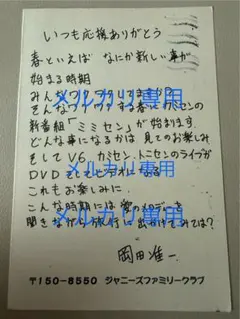 いつも応援ありがとう
春といえば なにか新しい事が
始まる時期
みんなワクワクしてますか?
そんなワクワクする春にカミセンの
新番組「ミミセン」が始まります
どんな事になるかは 見てのお楽しみ
そして V6 カミセン、トニセンのライブが
DVD
これもお楽しみに
こんな時期には 愛のメロディーを
聞きながら旅行に出かけてみては?
岡田准一
〒150-8550 ジャニーズファミリークラブ
メルカリ専用
メルカリ専用
メルカリ専用